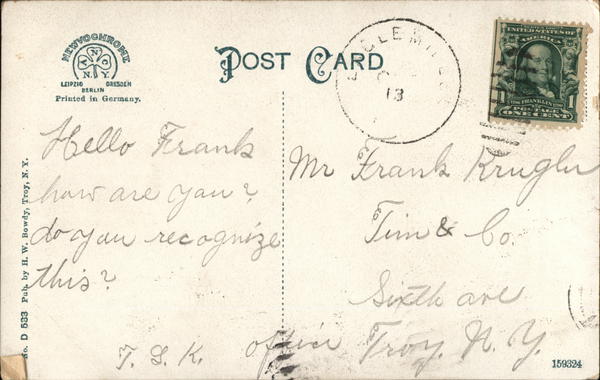 NEWVOCHROME
A N C O
N.Y.
LEIPZIG DRESDEN
BERLIN
Printed in Germany.
POST CARD
13
UNITED STATES OF
AMERICA
FRANKLIN
1
POSTAGE
ONE CENT
Hello Frank
how are you?
do you recognize
this?
T. S. K.
Mr Frank Krugler
Tim & Co.
Sixth ave
office Troy. N. Y.
No. D 533 Pub. by H. W. Bowdy, Troy, N. Y.
159324